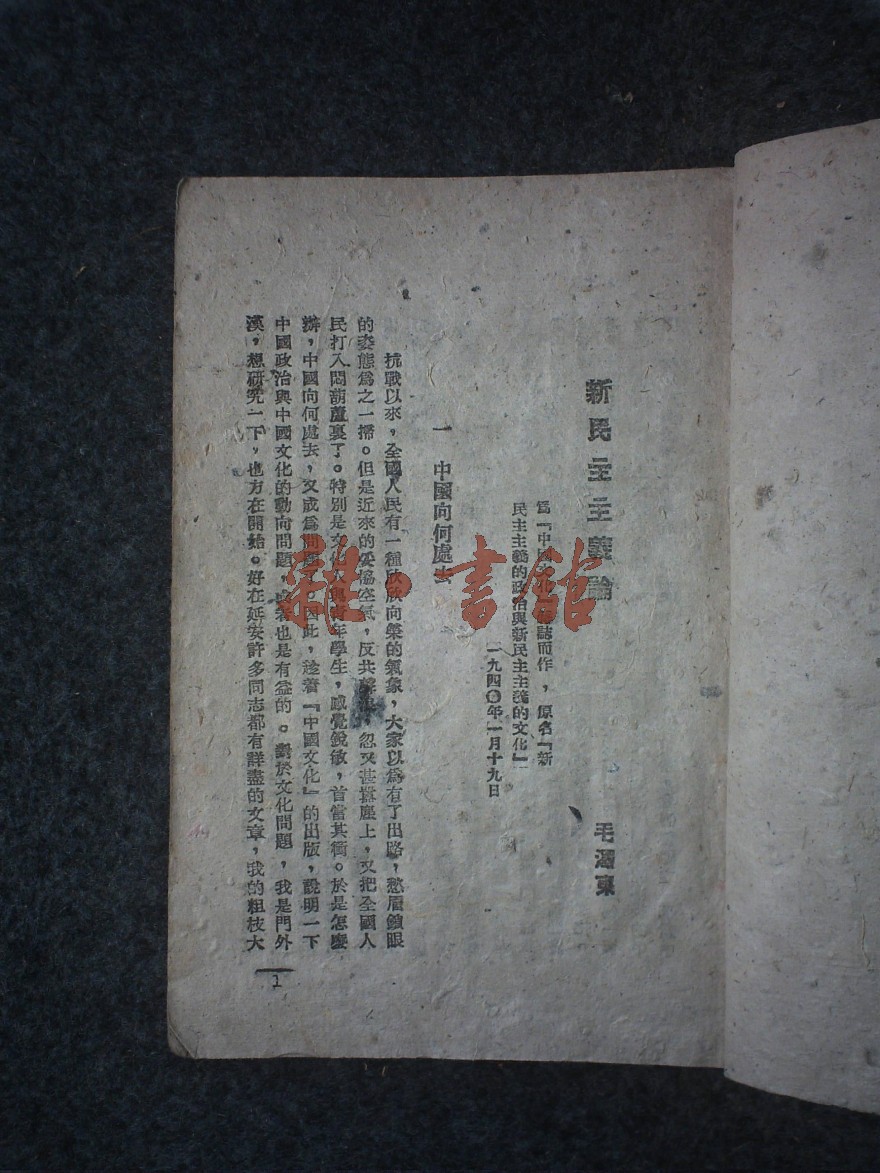 新民主主義論
毛澤東
爲『中國文化』雜誌而作，原名『新
民主主義的政治與新民主主義的文化』
一九四〇年一月十九日
一 中國向何處去
抗戰以來，全國人民有一種欣欣向榮的氣象，大家以爲有了出路，愁眉鎖眼
的姿態爲之一掃。但是近來的妥協空氣，反共聲浪，忽又甚囂塵上，又把全國人
民打入悶葫蘆裏了。特別是文化人與青年學生，感覺銳敏，首當其衝。於是怎麼
辦，中國向何處去，又成爲問題了。因此，趁着『中國文化』的出版，說明一下
中國政治與中國文化的動向問題，或者也是有益的。對於文化問題，我是門外
漢，想研究一下，也方在開始。好在延安許多同志都有詳盡的文章，我的粗枝大
1
雜·書館